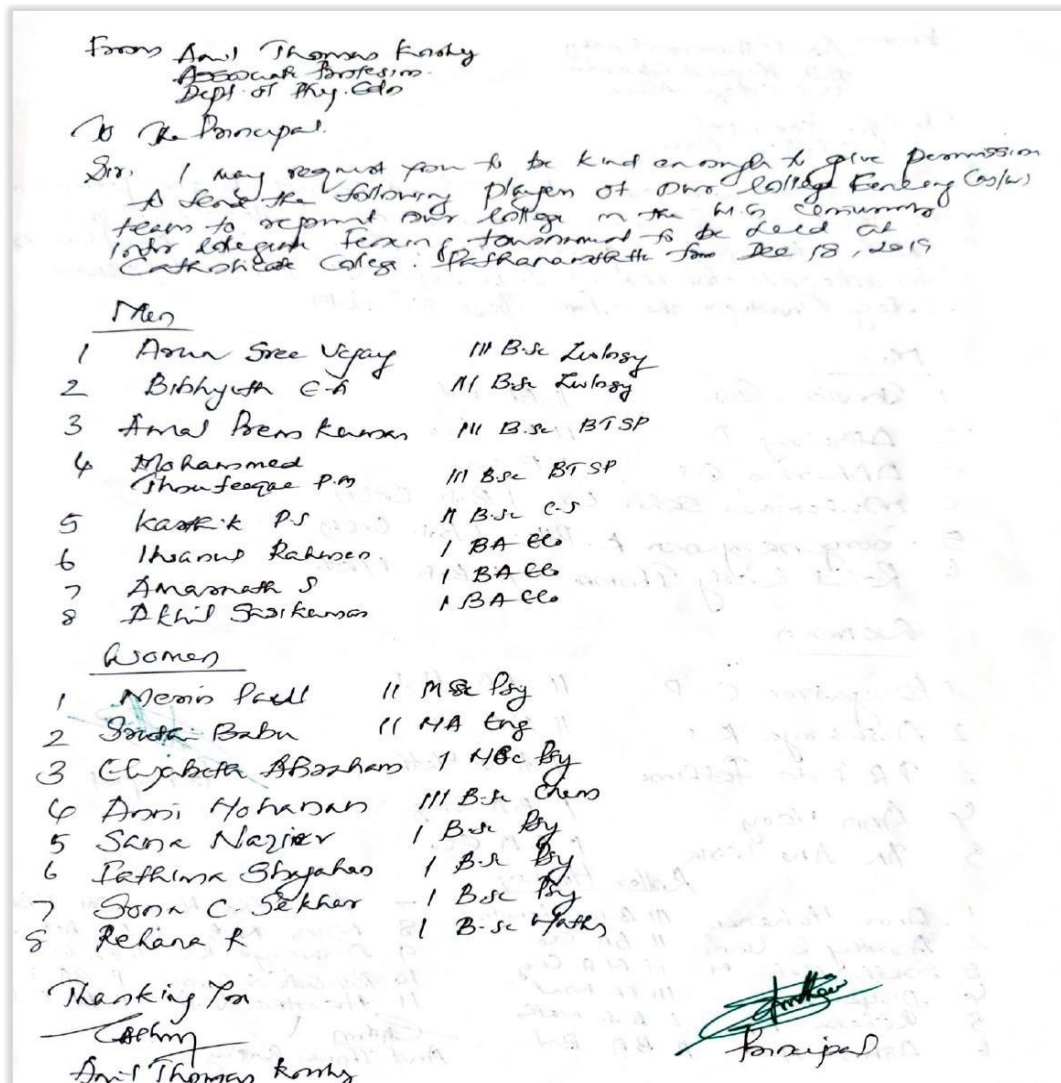 From Anil Thomas Koshy
Associate Professor
Dept. of Phy. Edn
To The Principal.
Sir, I may request you to be kind enough to give permission
to send the following players of our College Fencing (m/w)
team to represent our College in the M.G University
inter collegiate Fencing tournament to be held at
Catholicate College. Pathanamthitta from Dec 18, 2019
Men
1 Arun Sree Vijay III B.Sc Zoology
2 Bibhyuth C.A III B.Sc Zoology
3 Amal Prem Kumar III B.Sc BTSP
4 Mohammed
Thoufeeque P.M III B.Sc BTSP
5 Karthik P.S II B.Sc C.S
6 Ihsanus Rahman. I BA Eco
7 Amarnath S I BA Eco
8 Akhil Sasikumar I BA Eco
Women
1 Merin Paull II MSc Psy
2 Babu II MA Eng
3 Elizabeth Abraham I MSc Psy
4 Anni Mohanan III B.Sc Chem
5 Sana Nazier I B.Sc Psy
6 Fathima Shajahan I B.Sc Psy
7 Sona C. Sekhar I B.Sc Psy
8 Rehana R I B.Sc Maths
Thanking You
Anil Thomas Koshy
Principal